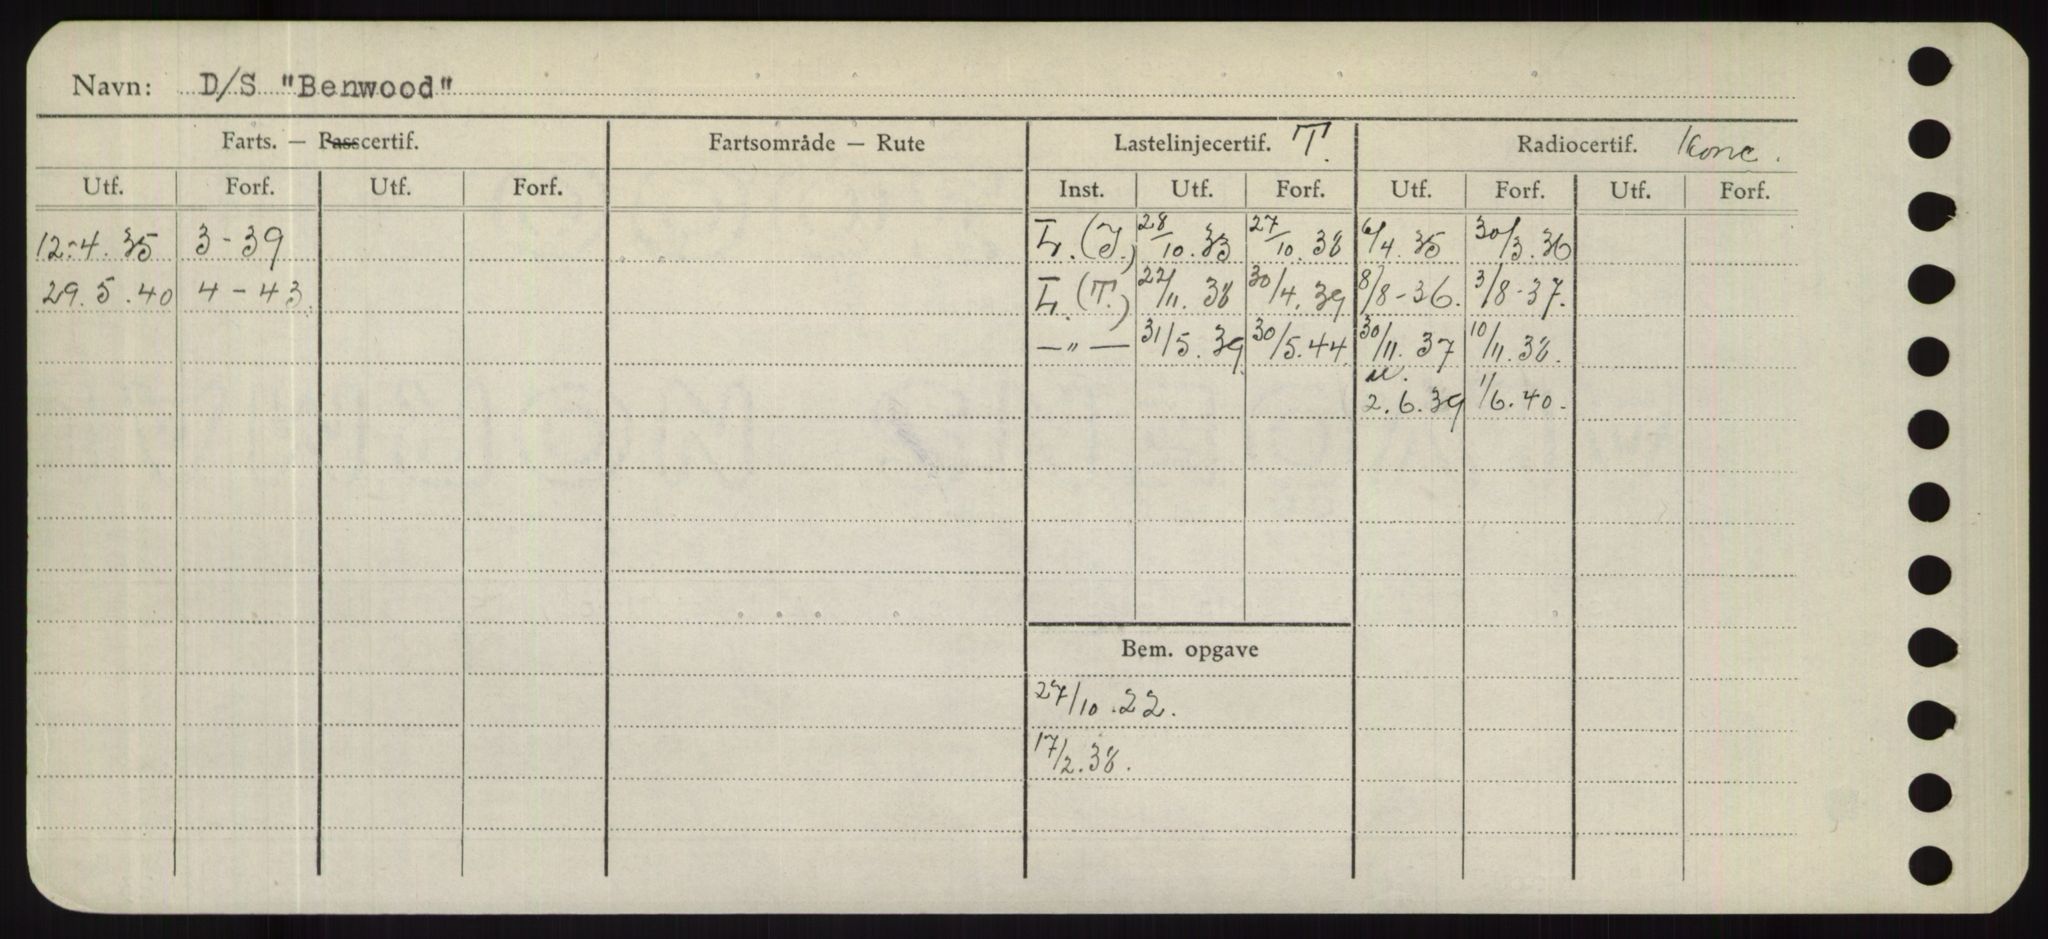 Navn: D/S "Benwood"
Farts. — Passcertif. Fartsområde — Rute Lastelinjecertif. T. Radiocertif. Konc.
Utf. Forf. Utf. Forf. Inst. Utf. Forf. Utf. Forf. Utf. Forf.
12.-4.35 3-39 L.(I.) 28/10.33 27/10.38 6/4.35 30/3.36
29.5.40 4-43. L.(T.) 22/11.38 30/4.39 8/8-36. 3/8-37.
—"— 31/5.39 30/5.44 30/11.37 10/11.38.
2.6.39 1/6.40.
Bem. opgave
27/10.22.
17/2.38.